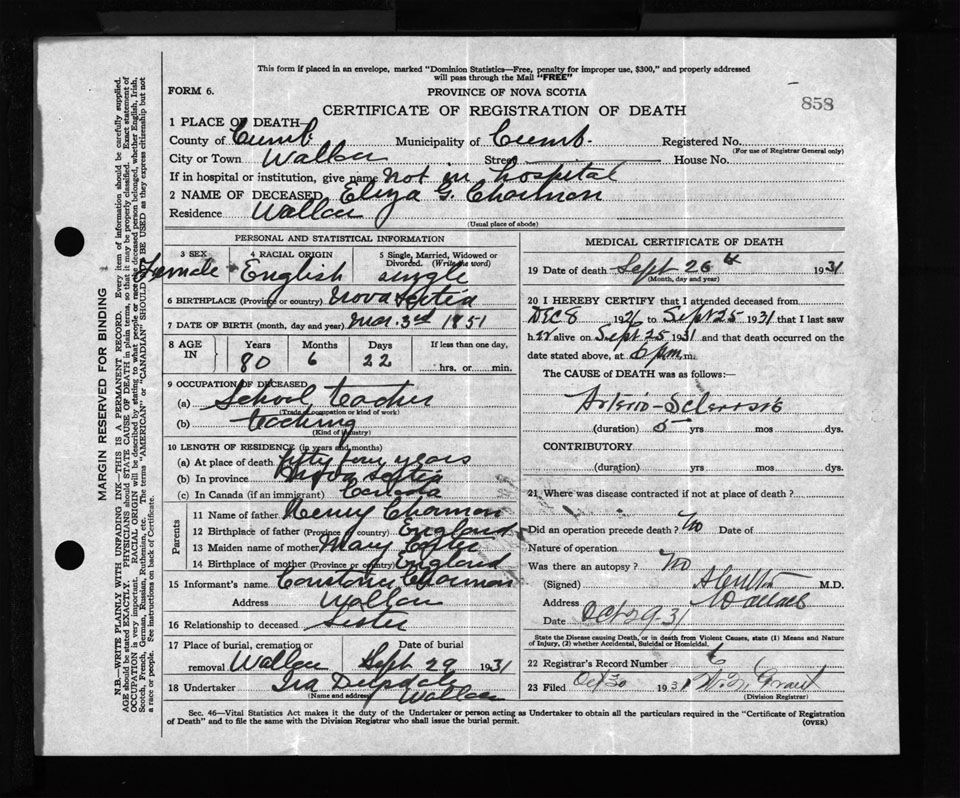 This form if placed in an envelope, marked "Dominion Statistics—Free, penalty for improper use, $300," and properly addressed
will pass through the Mail "FREE"
FORM 6.
PROVINCE OF NOVA SCOTIA
858
CERTIFICATE OF REGISTRATION OF DEATH
1 PLACE OF DEATH—
County of Cumb. Municipality of Cumb. Registered No.
(For use of Registrar General only)
City or Town Wallace Street House No.
If in hospital or institution, give name not in hospital
2 NAME OF DECEASED Eliza G.
Residence Wallace
(Usual place of abode)
PERSONAL AND STATISTICAL INFORMATION
3 SEX Female
4 RACIAL ORIGIN English
5 Single, Married, Widowed or Divorced. (Write the word) single
6 BIRTHPLACE (Province or country) Nova Scotia
7 DATE OF BIRTH (month, day and year) Mar. 3rd 1851
8 AGE IN Years 80 Months 6 Days 22 If less than one day, hrs. or min.
9 OCCUPATION OF DECEASED
(a) School teacher
(Trade, occupation or kind of work)
(b) teaching
(Kind of industry)
10 LENGTH OF RESIDENCE (in years and months)
(a) At place of death fifty four years
(b) In province Nova Scotia
(c) In Canada (if an immigrant) Canada
Parents
11 Name of father Henry
12 Birthplace of father (Province or country) England
13 Maiden name of mother Mary
14 Birthplace of mother (Province or country) England
15 Informant's name Constance
Address Wallace
16 Relationship to deceased Sister
17 Place of burial, cremation or removal Wallace
Date of burial Sept 29 1931
18 Undertaker Ira Wallace
(Name and address)
MEDICAL CERTIFICATE OF DEATH
19 Date of death Sept 26th 1931
(Month, day and year)
20 I HEREBY CERTIFY that I attended deceased from
DEC 8 1926 to Sept 25 1931 that I last saw
her alive on Sept 25 1931 and that death occurred on the
date stated above, at 6 p.m. m.
The CAUSE of DEATH was as follows:
Arterio-Sclerosis
(duration) 5 yrs mos dys.
CONTRIBUTORY
(duration) yrs mos dys.
21. Where was disease contracted if not at place of death?
Did an operation precede death? No Date of
Nature of operation
Was there an autopsy? No
(Signed) M.D.
Address Wallace
Date Oct 29 31
State the Disease causing Death, or in death from Violent Causes, state (1) Means and Nature
of Injury, (2) whether Accidental, Suicidal or Homicidal.
22 Registrar's Record Number 6
23 Filed Oct 30 1931 Grant
(Division Registrar)
Sec. 46—Vital Statistics Act makes it the duty of the Undertaker or person acting as Undertaker to obtain all the particulars required in the "Certificate of Registration
of Death" and to file the same with the Division Registrar who shall issue the burial permit.
(OVER)
MARGIN RESERVED FOR BINDING
N.B.—WRITE PLAINLY WITH UNFADING INK—THIS IS A PERMANENT RECORD. Every item of information should be carefully supplied.
AGE should be stated EXACTLY. PHYSICIANS should STATE CAUSE OF DEATH in plain terms, so that it may be properly classified. Exact statement of
OCCUPATION is very important. RACIAL ORIGIN will be described by stating to what people or race the deceased person belonged, whether English, Irish,
Scotch, French, German, Russian, Ruthenian, etc. The terms "AMERICAN" or "CANADIAN" SHOULD NOT BE USED as they express citizenship but not
a race or people. See instructions on back of Certificate.